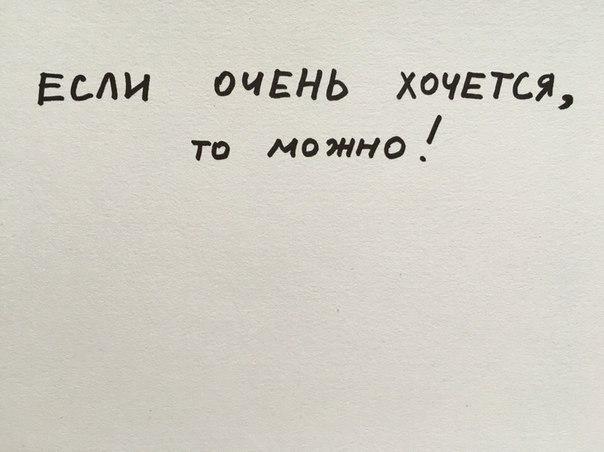 ЕСЛИ ОЧЕНЬ ХОЧЕТСЯ,
ТО МОЖНО!